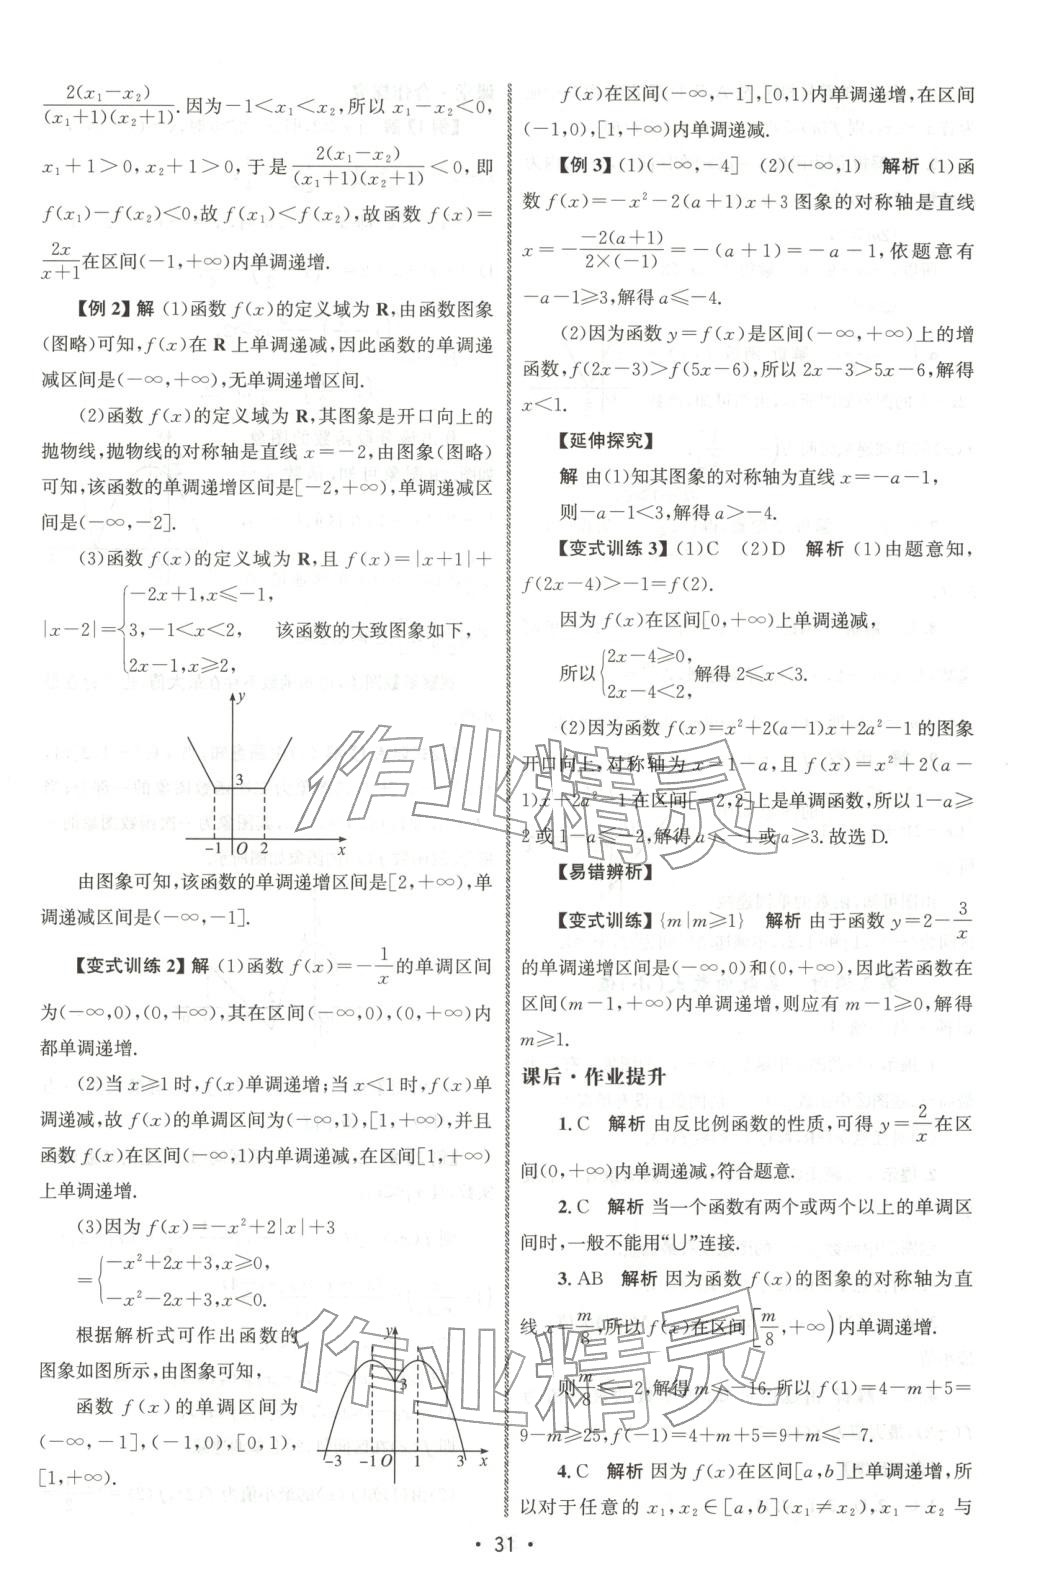 2(x₁−x₂)/((x₁+1)(x₂+1)).因为−1<x₁<x₂,所以 x₁−x₂<0,
x₁+1>0,x₂+1>0,于是 2(x₁−x₂)/((x₁+1)(x₂+1))<0,即
f(x₁)−f(x₂)<0,故 f(x₁)<f(x₂),故函数 f(x)=
2x/(x+1)在区间(−1,+∞)内单调递增.
【例 2】解 (1)函数 f(x)的定义域为 R,由函数图象
(图略)可知,f(x)在 R 上单调递减,因此函数的单调递
减区间是(−∞,+∞),无单调递增区间.
(2)函数 f(x)的定义域为 R,其图象是开口向上的
抛物线,抛物线的对称轴是直线 x=−2,由图象(图略)
可知,该函数的单调递增区间是[−2,+∞),单调递减区
间是(−∞,−2].
(3)函数 f(x)的定义域为 R,且 f(x)=|x+1|+
|x−2|={−2x+1,x≤−1,
3,−1<x<2, 该函数的大致图象如下,
2x−1,x≥2,
y
3
−1 O 2 x
由图象可知,该函数的单调递增区间是[2,+∞),单
调递减区间是(−∞,−1].
【变式训练 2】解 (1)函数 f(x)=−1/x的单调区间
为(−∞,0),(0,+∞),其在区间(−∞,0),(0,+∞)内
都单调递增.
(2)当 x≥1 时,f(x)单调递增;当 x<1 时,f(x)单
调递减,故 f(x)的单调区间为(−∞,1),[1,+∞),并且
函数 f(x)在区间(−∞,1)内单调递减,在区间[1,+∞)
上单调递增.
(3)因为 f(x)=−x²+2|x|+3
={−x²+2x+3,x≥0,
−x²−2x+3,x<0.
根据解析式可作出函数的
图象如图所示,由图象可知,
函数 f(x)的单调区间为
(−∞,−1],(−1,0),[0,1),
[1,+∞).
y
3
−3 −1 O 1 3 x
f(x)在区间(−∞,−1],[0,1)内单调递增,在区间
(−1,0),[1,+∞)内单调递减.
【例 3】(1)(−∞,−4] (2)(−∞,1) 解析 (1)函
数 f(x)=−x²−2(a+1)x+3 图象的对称轴是直线
x=−(−2(a+1))/(2×(−1))=−(a+1)=−a−1,依题意有
−a−1≥3,解得 a≤−4.
(2)因为函数 y=f(x)是区间(−∞,+∞)上的增
函数,f(2x−3)>f(5x−6),所以 2x−3>5x−6,解得
x<1.
【延伸探究】
解 由(1)知其图象的对称轴为直线 x=−a−1,
则−a−1<3,解得 a>−4.
【变式训练 3】(1)C (2)D 解析 (1)由题意知,
f(2x−4)>−1=f(2).
因为 f(x)在区间[0,+∞)上单调递减,
所以{2x−4≥0,
2x−4<2, 解得 2≤x<3.
(2)因为函数 f(x)=x²+2(a−1)x+2a²−1 的图象
开口向上,对称轴为 x=1−a,且 f(x)=x²+2(a−
1)x+2a²−1 在区间[−2,2]上是单调函数,所以 1−a≥
2 或 1−a≤−2,解得 a≤−1 或 a≥3.故选 D.
【易错辨析】
【变式训练】{m|m≥1} 解析 由于函数 y=2−3/x
的单调递增区间是(−∞,0)和(0,+∞),因此若函数在
区间(m−1,+∞)内单调递增,则应有 m−1≥0,解得
m≥1.
课后·作业提升
1.C 解析 由反比例函数的性质,可得 y=2/x在区
间(0,+∞)内单调递减,符合题意.
2.C 解析 当一个函数有两个或两个以上的单调区
间时,一般不能用“∪”连接.
3.AB 解析 因为函数 f(x)的图象的对称轴为直
线 x=m/8,所以 f(x)在区间[m/8,+∞)内单调递增.
则m/8≤−2,解得 m≤−16.所以 f(1)=4−m+5=
9−m≥25,f(−1)=4+m+5=9+m≤−7.
4.C 解析 因为 f(x)在区间[a,b]上单调递增,所
以对于任意的 x₁,x₂∈[a,b](x₁≠x₂),x₁−x₂ 与
• 31 •
作业精灵
作业精灵